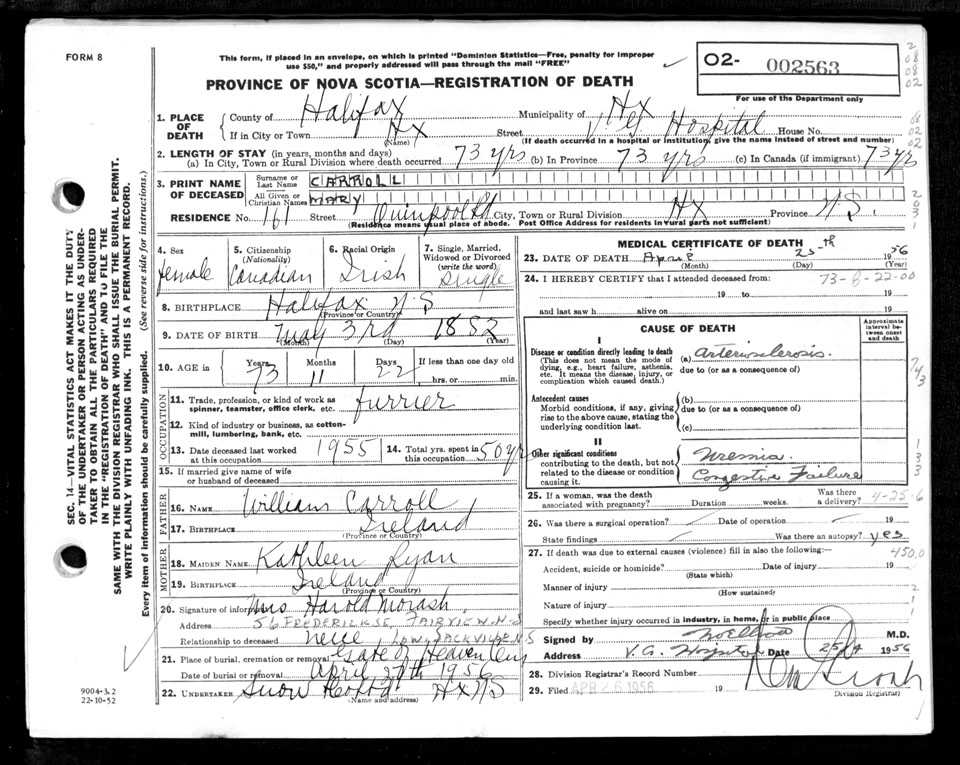 FORM 8
This form, if placed in an envelope, on which is printed "Dominion Statistics—Free, penalty for improper
use $50," and properly addressed will pass through the mail "FREE"
PROVINCE OF NOVA SCOTIA—REGISTRATION OF DEATH
02- 002563
For use of the Department only
1. PLACE OF DEATH
County of Halifax Municipality of Hx
If in City or Town Hx Street Hospital House No.
(Name) (If death occurred in a hospital or institution, give the name instead of street and number)
2. LENGTH OF STAY (in years, months and days)
(a) In City, Town or Rural Division where death occurred 73 yrs (b) In Province 73 yrs (c) In Canada (if immigrant) 73 yrs
3. PRINT NAME OF DECEASED
Surname or Last Name CARROLL
All Given or Christian Names MARY
RESIDENCE No. 161 Street Quinpool Rd City, Town or Rural Division Hx Province N.S.
(Residence means usual place of abode. Post Office Address for residents in rural parts not sufficient)
SEC. 14—VITAL STATISTICS ACT MAKES IT THE DUTY
OF THE UNDERTAKER OR PERSON ACTING AS UNDER-
TAKER TO OBTAIN ALL THE PARTICULARS REQUIRED
IN THE "REGISTRATION OF DEATH" AND TO FILE THE
SAME WITH THE DIVISION REGISTRAR WHO SHALL ISSUE THE BURIAL PERMIT.
WRITE PLAINLY WITH UNFADING INK. THIS IS A PERMANENT RECORD.
Every item of information should be carefully supplied. (See reverse side for instructions.)
4. Sex female
5. Citizenship (Nationality) Canadian
6. Racial Origin Irish
7. Single, Married, Widowed or Divorced (write the word) Single
8. BIRTHPLACE Halifax N S
(Province or Country)
9. DATE OF BIRTH May 3rd 1882
(Month) (Day) (Year)
10. AGE in Years 73 Months 11 Days 22 If less than one day old
hrs. or min.
OCCUPATION
11. Trade, profession, or kind of work as
spinner, teamster, office clerk, etc. furrier
12. Kind of industry or business, as cotton-
mill, lumbering, bank, etc.
13. Date deceased last worked at this occupation 1955
14. Total yrs. spent in this occupation 50 yrs
15. If married give name of wife
or husband of deceased
FATHER
16. NAME William Carroll
17. BIRTHPLACE Ireland
(Province or Country)
MOTHER
18. MAIDEN NAME Kathleen Ryan
19. BIRTHPLACE Ireland
(Province or Country)
20. Signature of informant Mrs Harold Morash
Address 56 FREDERICK ST, FAIRVIEW N-S
Relationship to deceased niece, LOW. SACKVILLE N S
21. Place of burial, cremation or removal Gate of Heaven Cem
Date of burial or removal April 27th 1956
22. UNDERTAKER Snow Hx NS
(Name and address)
9004-3.2
22-10-52
MEDICAL CERTIFICATE OF DEATH
23. DATE OF DEATH April 25th 1956
(Month) (Day) (Year)
24. I HEREBY CERTIFY that I attended deceased from: 73-8-22-00
19 to 19
and last saw h alive on 19
CAUSE OF DEATH
Approximate interval between onset and death
I
Disease or condition directly leading to death (a) arteriosclerosis.
(This does not mean the mode of dying, e.g., heart failure, asthenia, etc. It means the disease, injury, or complication which caused death.)
due to (or as a consequence of)
Antecedent causes (b)
Morbid conditions, if any, giving rise to the above cause, stating the underlying condition last.
due to (or as a consequence of)
(c)
II
Other significant conditions Uremia
contributing to the death, but not related to the disease or condition causing it.
Congestive Failure
25. If a woman, was the death associated with pregnancy? Duration weeks. Was there a delivery? 4-25-6
26. Was there a surgical operation? Date of operation 19
State findings Was there an autopsy? yes
27. If death was due to external causes (violence) fill in also the following:— 450.0
Accident, suicide or homicide? Date of injury 19
(State which)
Manner of injury
(How sustained)
Nature of injury
Specify whether injury occurred in industry, in home, or in public place
Signed by M.D.
Address V.G. Hospital Date 25/4 1956
28. Division Registrar's Record Number
29. Filed APR 26 1956 19
Division Registrar)